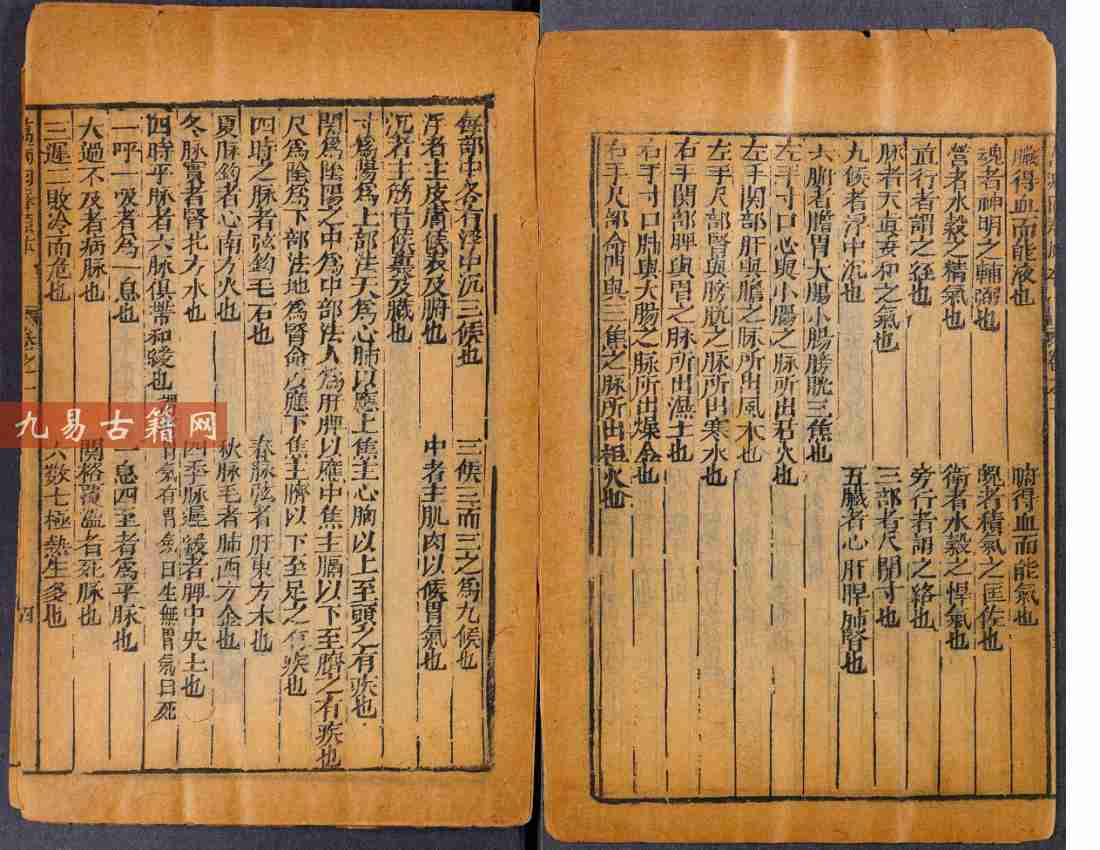 臟得血而能液也　腑得血而能氣也
魂者神明之輔弼也　魄者積氣之匡佐也
營者水穀之精氣也　衛者水穀之悍氣也
直行者謂之經也　旁行者謂之絡也
脉者天真委和之氣也　三部者尺關寸也
九候者浮中沉也　五臟者心肝脾肺腎也
六腑者膽胃大腸小腸膀胱三焦也
左手寸口心與小腸之脉所出君火也
左手関部肝與膽之脉所出風木也
左手尺部腎與膀胱之脉所出寒水也
右手関部脾與胃之脉所出濕土也
右手寸口肺與大腸之脉所出燥金也
右手尺部命門與三焦之脉所出相火也
每部中各有浮中沉三候也　三候三而三之為九候也
浮者主皮膚候表及腑也　中者主肌肉以候胃氣也
沉者主筋骨候裏及臟也
寸為陽為上部法天為心肺以應上焦主心胸以上至頭之有疾也
関為陰陽之中為中部法人為肝脾以應中焦主膈以下至臍之有疾也
尺為陰為下部法地為腎命以應下焦主臍以下至足之有疾也
四時之脉者弦鈎毛石也　春脉弦者肝東方木也
夏脉鈎者心南方火也　秋脉毛者肺西方金也
冬脉實者腎北方水也　四季脉遲緩者脾中央土也
四時平脉者六脉俱帶和緩也　胃氣有胃氣曰生無胃氣曰死
一呼一吸者為一息也　一息四至者為平脉也
大過不及者病脉也　関格覆溢者死脉也
三遲二敗冷而危也　六数七極熱生多也
四
九易古籍网